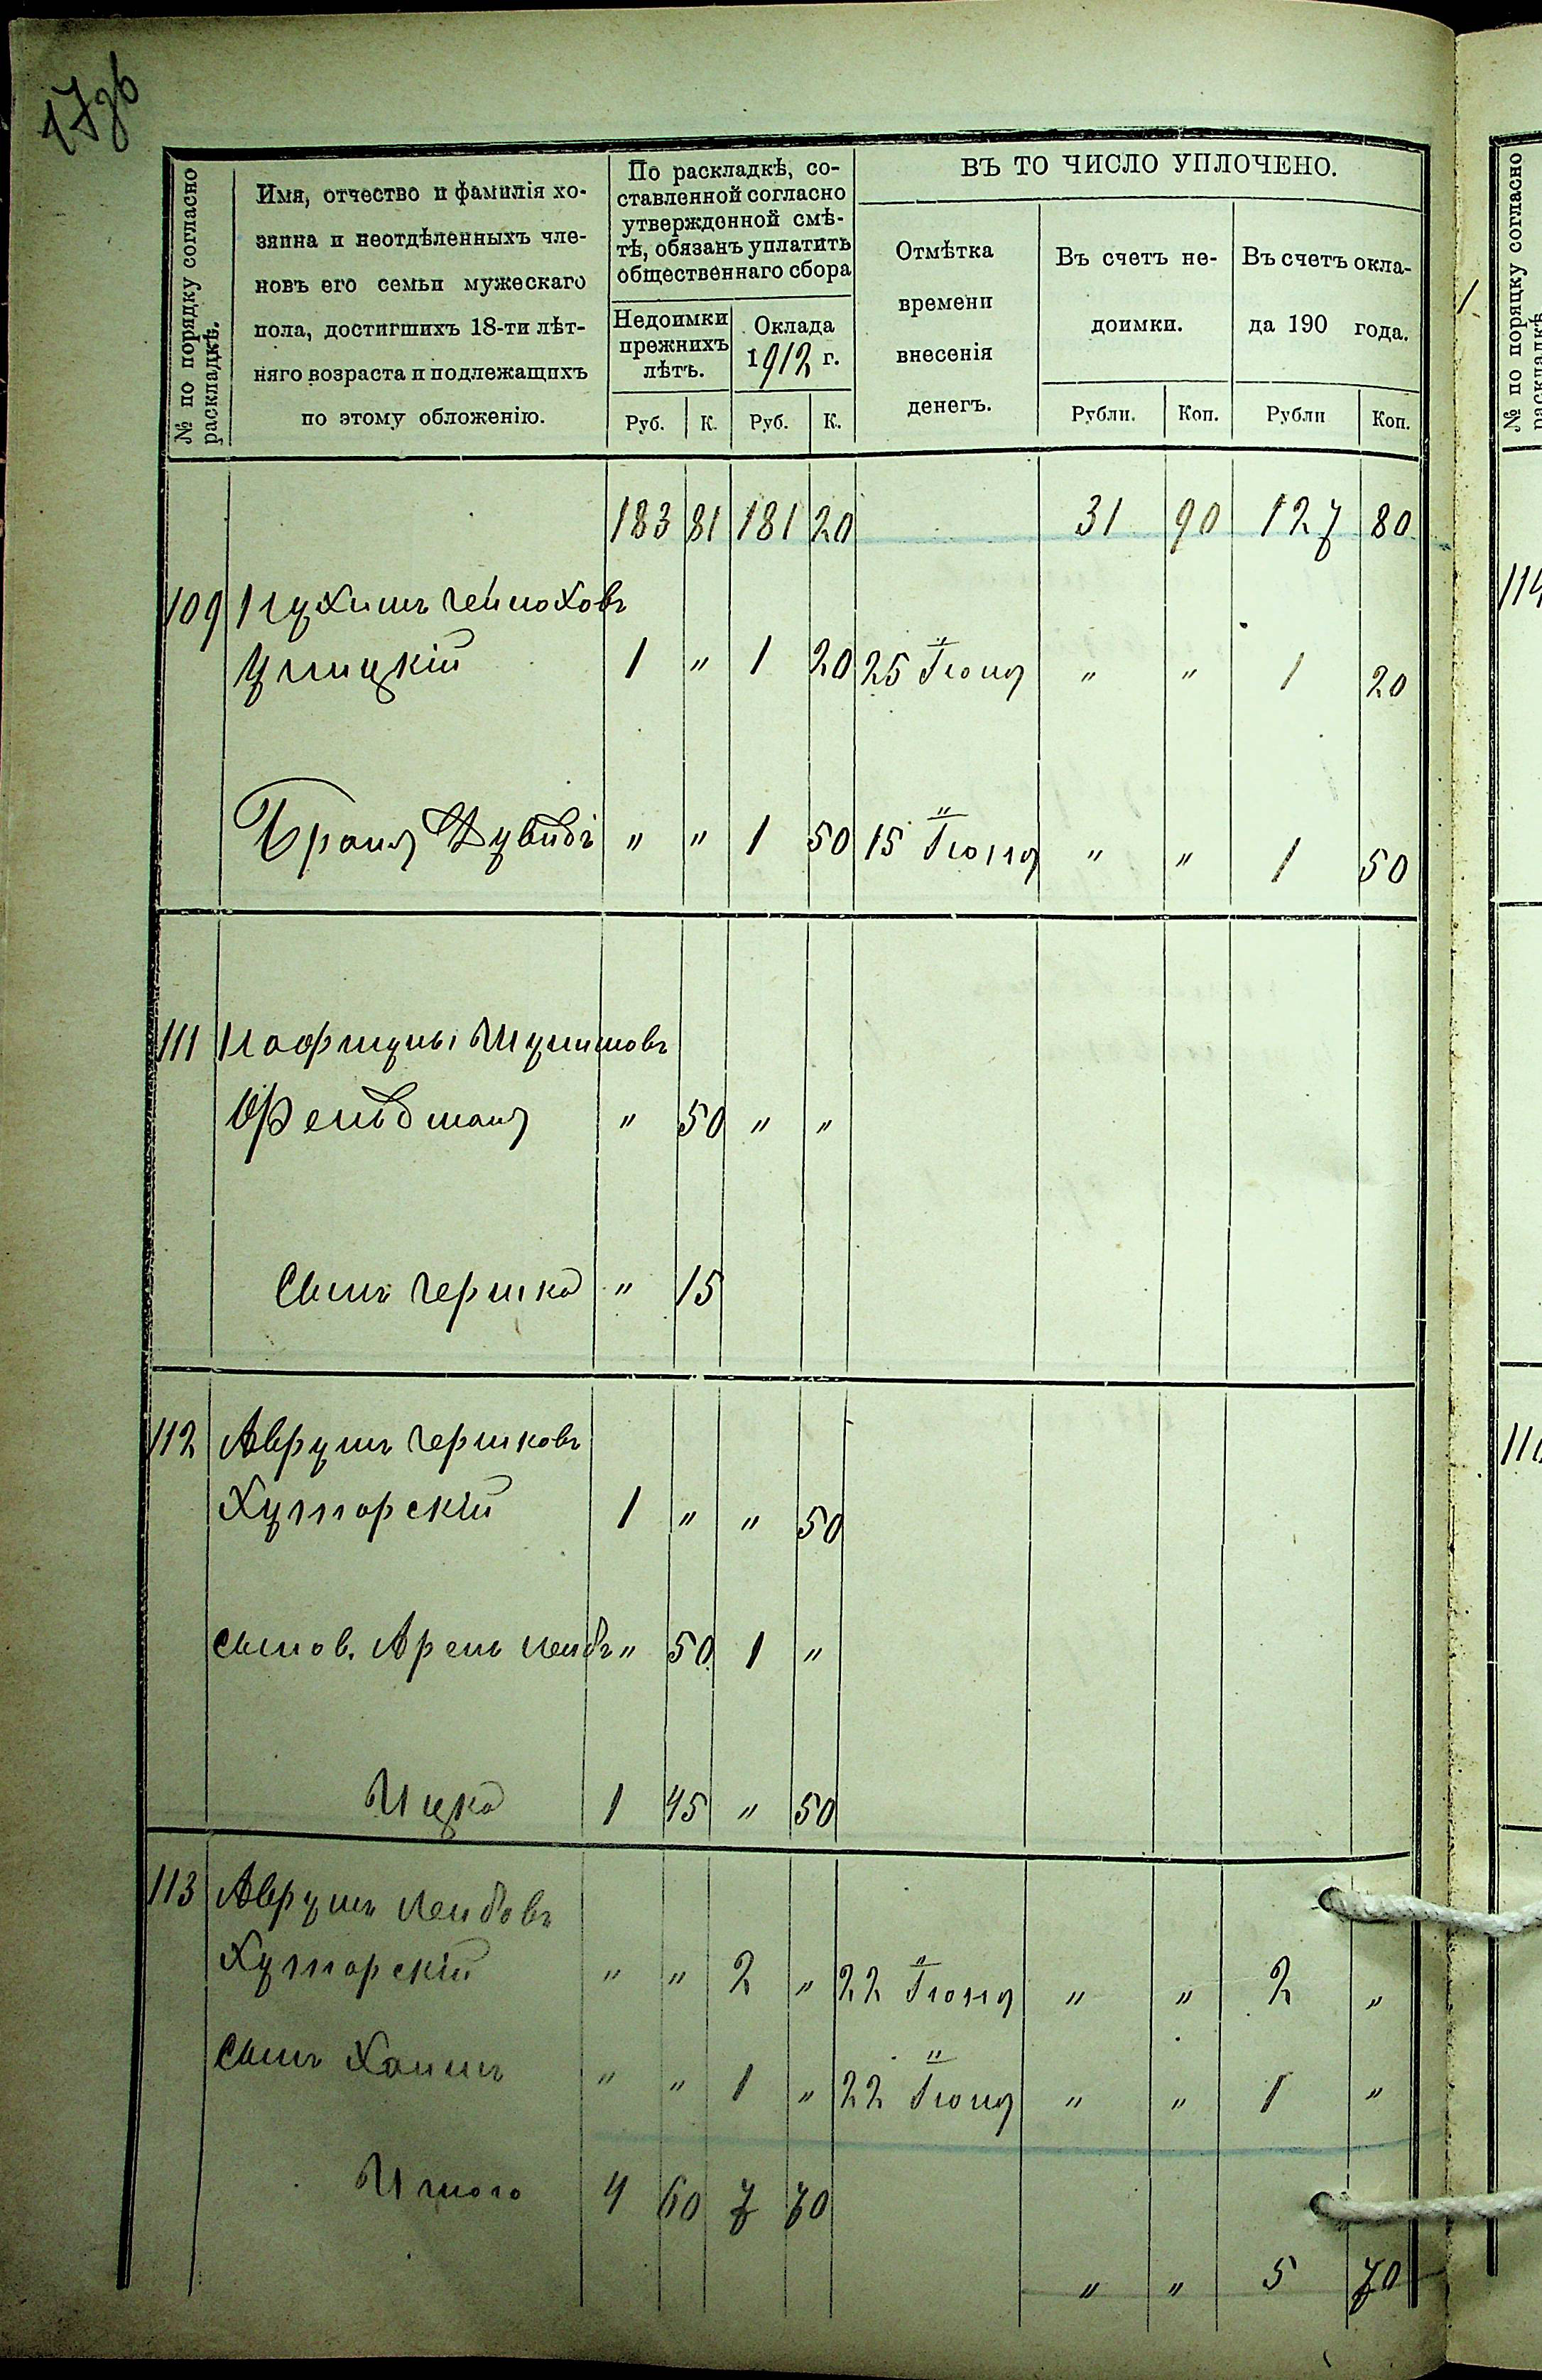 17 зв
№ по порядку согласно раскладкѣ.
Имя, отчество и фамилія хо-
зяина и неотдѣленныхъ чле-
новъ его семьи мужескаго
пола, достигшихъ 18-ти лѣт-
няго возраста и подлежащихъ
по этому обложенію.
По раскладкѣ, со-
ставленной согласно
утвержденной смѣ-
тѣ, обязанъ уплатить
общественнаго сбора
Недоимки
прежнихъ
лѣтъ.
Оклада
1912 г.
Руб. К. Руб. К.
ВЪ ТО ЧИСЛО УПЛОЧЕНО.
Отмѣтка
времени
внесенія
денегъ.
Въ счетъ не-
доимки.
Рубли. Коп.
Въ счетъ окла-
да 190 года.
Рубли Коп.
183 81 181 20 31 90 127 80
109
Улицкій 1 " 1 20 25 Іюня " " 1 20
Братъ Дувидъ " " 1 50 15 Іюня " " 1 50
111 Шулимовъ
Фельдманъ " 50 " "
Сынъ Гершко " 15
112 Аврумъ Гершковъ
Хуторскій 1 " " 50
Сынов. Аренъ Лейбъ " 50 1 "
Ицко 1 45 " 50
113 Аврумъ Лейбовъ
Хуторскій " " 2 " 22 Іюня " " 2 "
Сынъ Хаимъ " " 1 " 22 Іюня " " 1 "
Итого 4 60 7 70
" " 5 70
№ по порядку согласно раскладкѣ
114